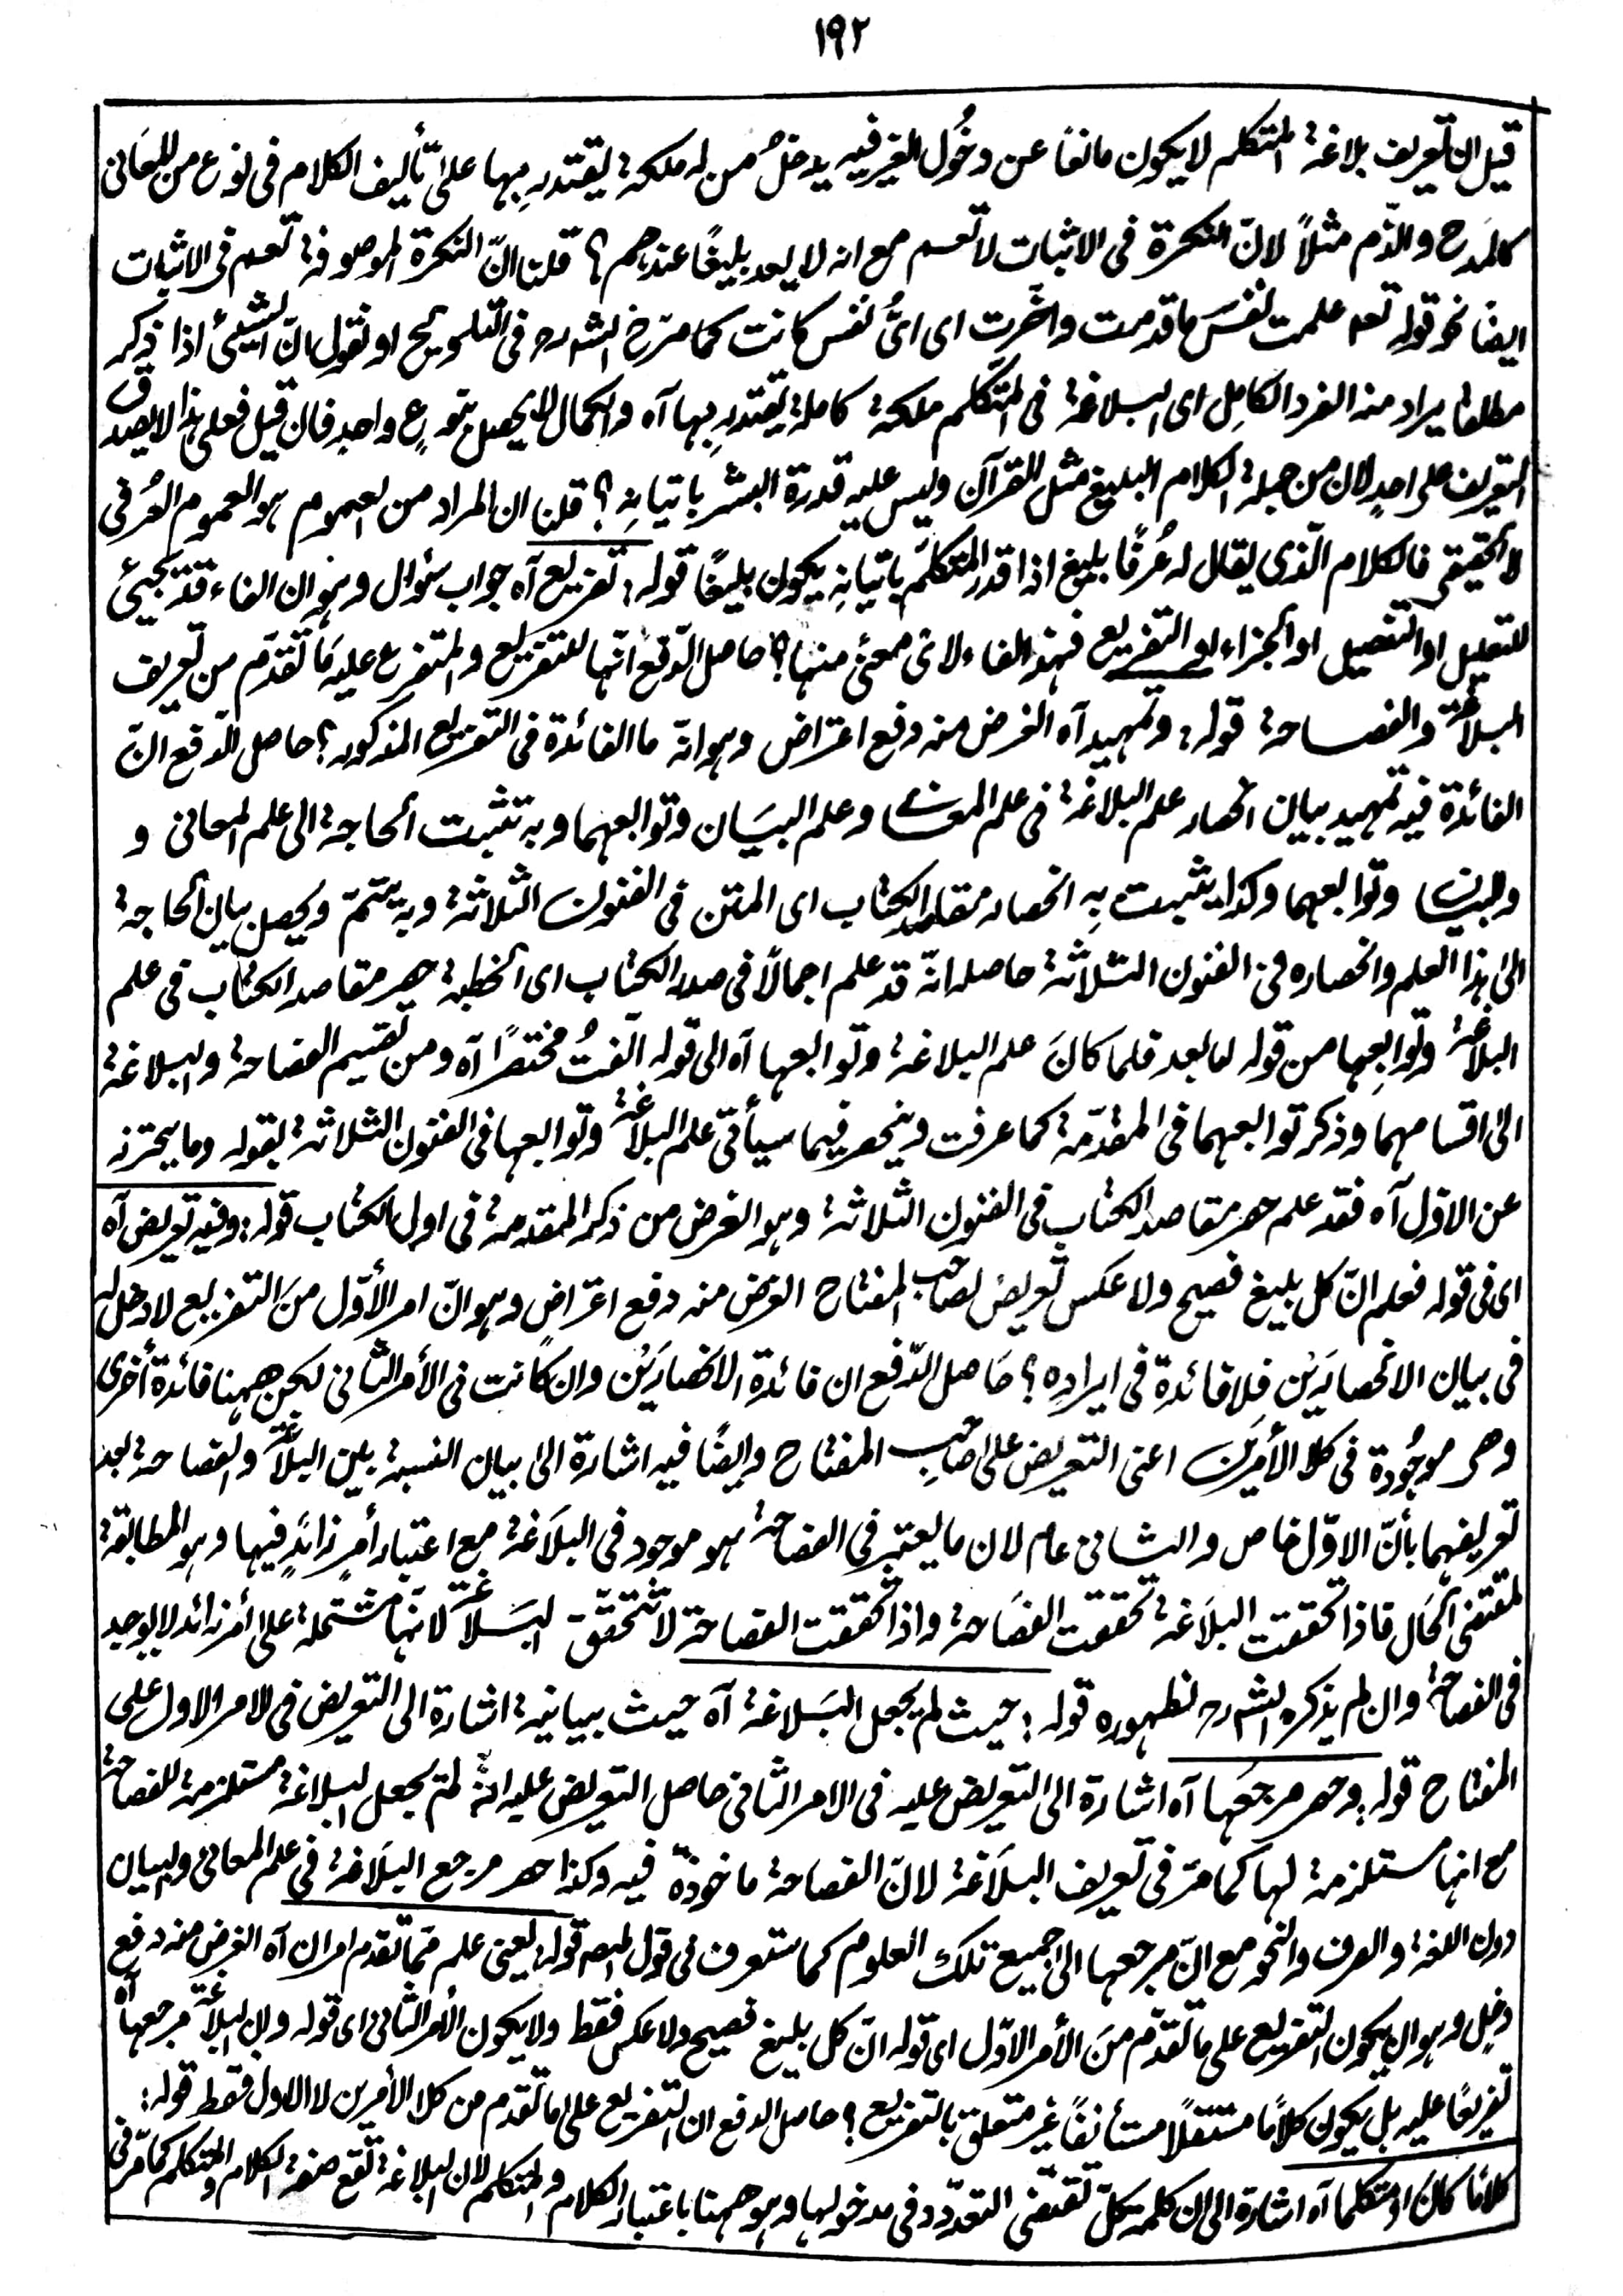 ١٩٢
قيل ان تعريف بلاغة المتكلم لا يكون مانعًا عن دخُول الغير فيه يدخلُ من له ملكة يقتدر بها على تأليف الكلام فى نوع من المعَانى
كالمدح والذّم مثلاً لانّ النكرة فى الاثبات لا تعم مع انه لا يعد بليغًا عندهم؟ قلنا انّ النكرة الموصوفة تعم فى الاثبات
ايضًا نحو قوله تعـ علمت نفسَ ما قدمت واخّرت اى اىُّ نفس كانت كما صرّح الشـ رحـ فى التلويح او نقول انّ الشيئ اذا ذكر
مطلقا يراد منه الفرد الكامِل اى البلاغة فى المتكلم ملكة كاملة يقتدر بها آه والكمال لا يحصل بنوعٍ واحدٍ فان قيل فعلى هذا لا يصدق
التعريف على احدٍ لان من جملة الكلام البليغ مثل القرآن وليس عليه قدرة البشر باتيانه؟ قلنا ان المراد من العموم هو العموم العُرفى
لا الحقيقى فالكلام الّذى يقال له عُرفًا بليغ اذا قدر المتكلّم باتيانه يكون بليغًا قوله: تفريع آه جواب سئوال وهو ان الفاء قد تجيئ
للتعليل او التفصيل او الجزاء او التفريع فهذه الفاء لاىّ معنًى منها؟ حاصل الدّفع انّها للتفريع والمتفرع عليه مَا تقدّم من تعريف
البلاغة والفصاحة قوله: وتمهيد آه الغرض منه دفع اعتراض وهو انّه ما الفائدة فى التفريع المذكور؟ حاصل الدّفع انّ
الفائدة فيه تمهيد بيان انحصار علم البلاغة فى علم المعانى وعلم البيَان وتوابعهما وبه تثبت الحاجة الى علم المعانى و
والبيان وتوابعهما وكذا يثبت بِه انحصار مقاصد الكتاب اى المتن فى الفنون الثلاثة وبه يتمّ ويحصل بيان الحاجة
الى هذا العلم وانحصاره فى الفنون الثلاثة حاصله انّه قد علم اجمالًا فى صدر الكتاب اى الخطبة حصر مقاصد الكتاب فى علم
البلاغة وتوابِعها من قوله اما بعد فلما كانَ علم البلاغة وتوابعها آه الى قوله الّفتُ مختصرًا آه ومن تقسيم الفصاحة والبلاغة
الى اقسامهما وذكر توابعهما فى المقدّمة كما عرفت وينحصر فيما سيأتى علم البلاغة وتوابعها فى الفنون الثلاثة بقوله وما يحترز به
عن الاوّل آه فقد علم حصر مقاصد الكتاب فى الفنون الثلاثة وهو الغرض من ذكر المقدمة فى اول الكتاب قوله: وفيه تعريض آه
اى فى قوله فعلم انّ كل بليغ فصيح ولا عكس تعريض لصاحب المفتاح الغرض منه دفع اعتراضٍ وهو انّ امر الأوّل منَ التفريع لا دخل له
فى بيان الانحصارَين فلا فائدة فى ايراده؟ حَاصل الدّفع ان فائدة الانحصارَين وان كانت فى الأمر الثانى لكن ههنا فائدة أخرى
وهى موجُودة فى كلا الأمرين اعنى التعريض على صاحِب المفتاح وايضًا فيه اشارة الى بيان النسبة بين البلاغة والفصاحة بعد
تعريفهما بأنّ الاوّل خاص والثانى عام لان ما يعتبر فى الفصاحة هو موجود فى البلَاغة مع اعتبار أمرٍ زائدٍ فيها وهو المطابقة
لمقتضى الحَال فاذا تحققت البلَاغة تحققت الفصَاحة واذا تحققت الفصاحة لا تتحقّق البَلاغة لانّها مشتملة على أمر زائد لا يوجد
فى الفصاحة وان لم يذكره الشـ رحـ لظهوره قوله: حيث لم يجعل البَلاغة آه حيث بيانية اشارة الى التعريض فى الامر الاول على
المفتاح قوله: وحصر مرجعَها آه اشارة الى التعريض عليه فى الامر الثانى حاصل التعريض عليه انهُ لم يجعل البلاغة مستلزمة للفصاحة
مع انها مستلزمة لها كما مرّ فى تعريف البلَاغة لانّ الفصاحة ماخوذة فيه وكذا حصر مرجع البلَاغة فى علم المعانى والبيان
دون اللغة والصرف والنحو مع انّ مرجعها الى جميع تلك العلوم كما ستعرف فى قول المصـ قوله: يعنى علم ممّا تقدم امران آه الغرض منه دفع
دخل وهو ان يكون التفريع على ما تقدّم منَ الأمر الاوّل اى قوله انّ كل بليغ فصيح ولا عكس فقط ولا يكون الأمر الثانى اى قوله وان البلاغة مرجعها آه
تفريعًا عليه بل يكون كلامًا مستقلًا مستأنفًا غير متعلق بالتفريع؟ حاصل الدفع ان التفريع على ما تقدم من كلا الأمرين لا الاول فقط قوله:
كلامًا كان او متكلما آه اشارة الى ان كلمة كلّ تقتضى التعدّد فى مدخولها وهو ههنا باعتبار الكلام والمتكلم لان البلاغة تقع صفة الكلام والمتكلم كما مرّ فى